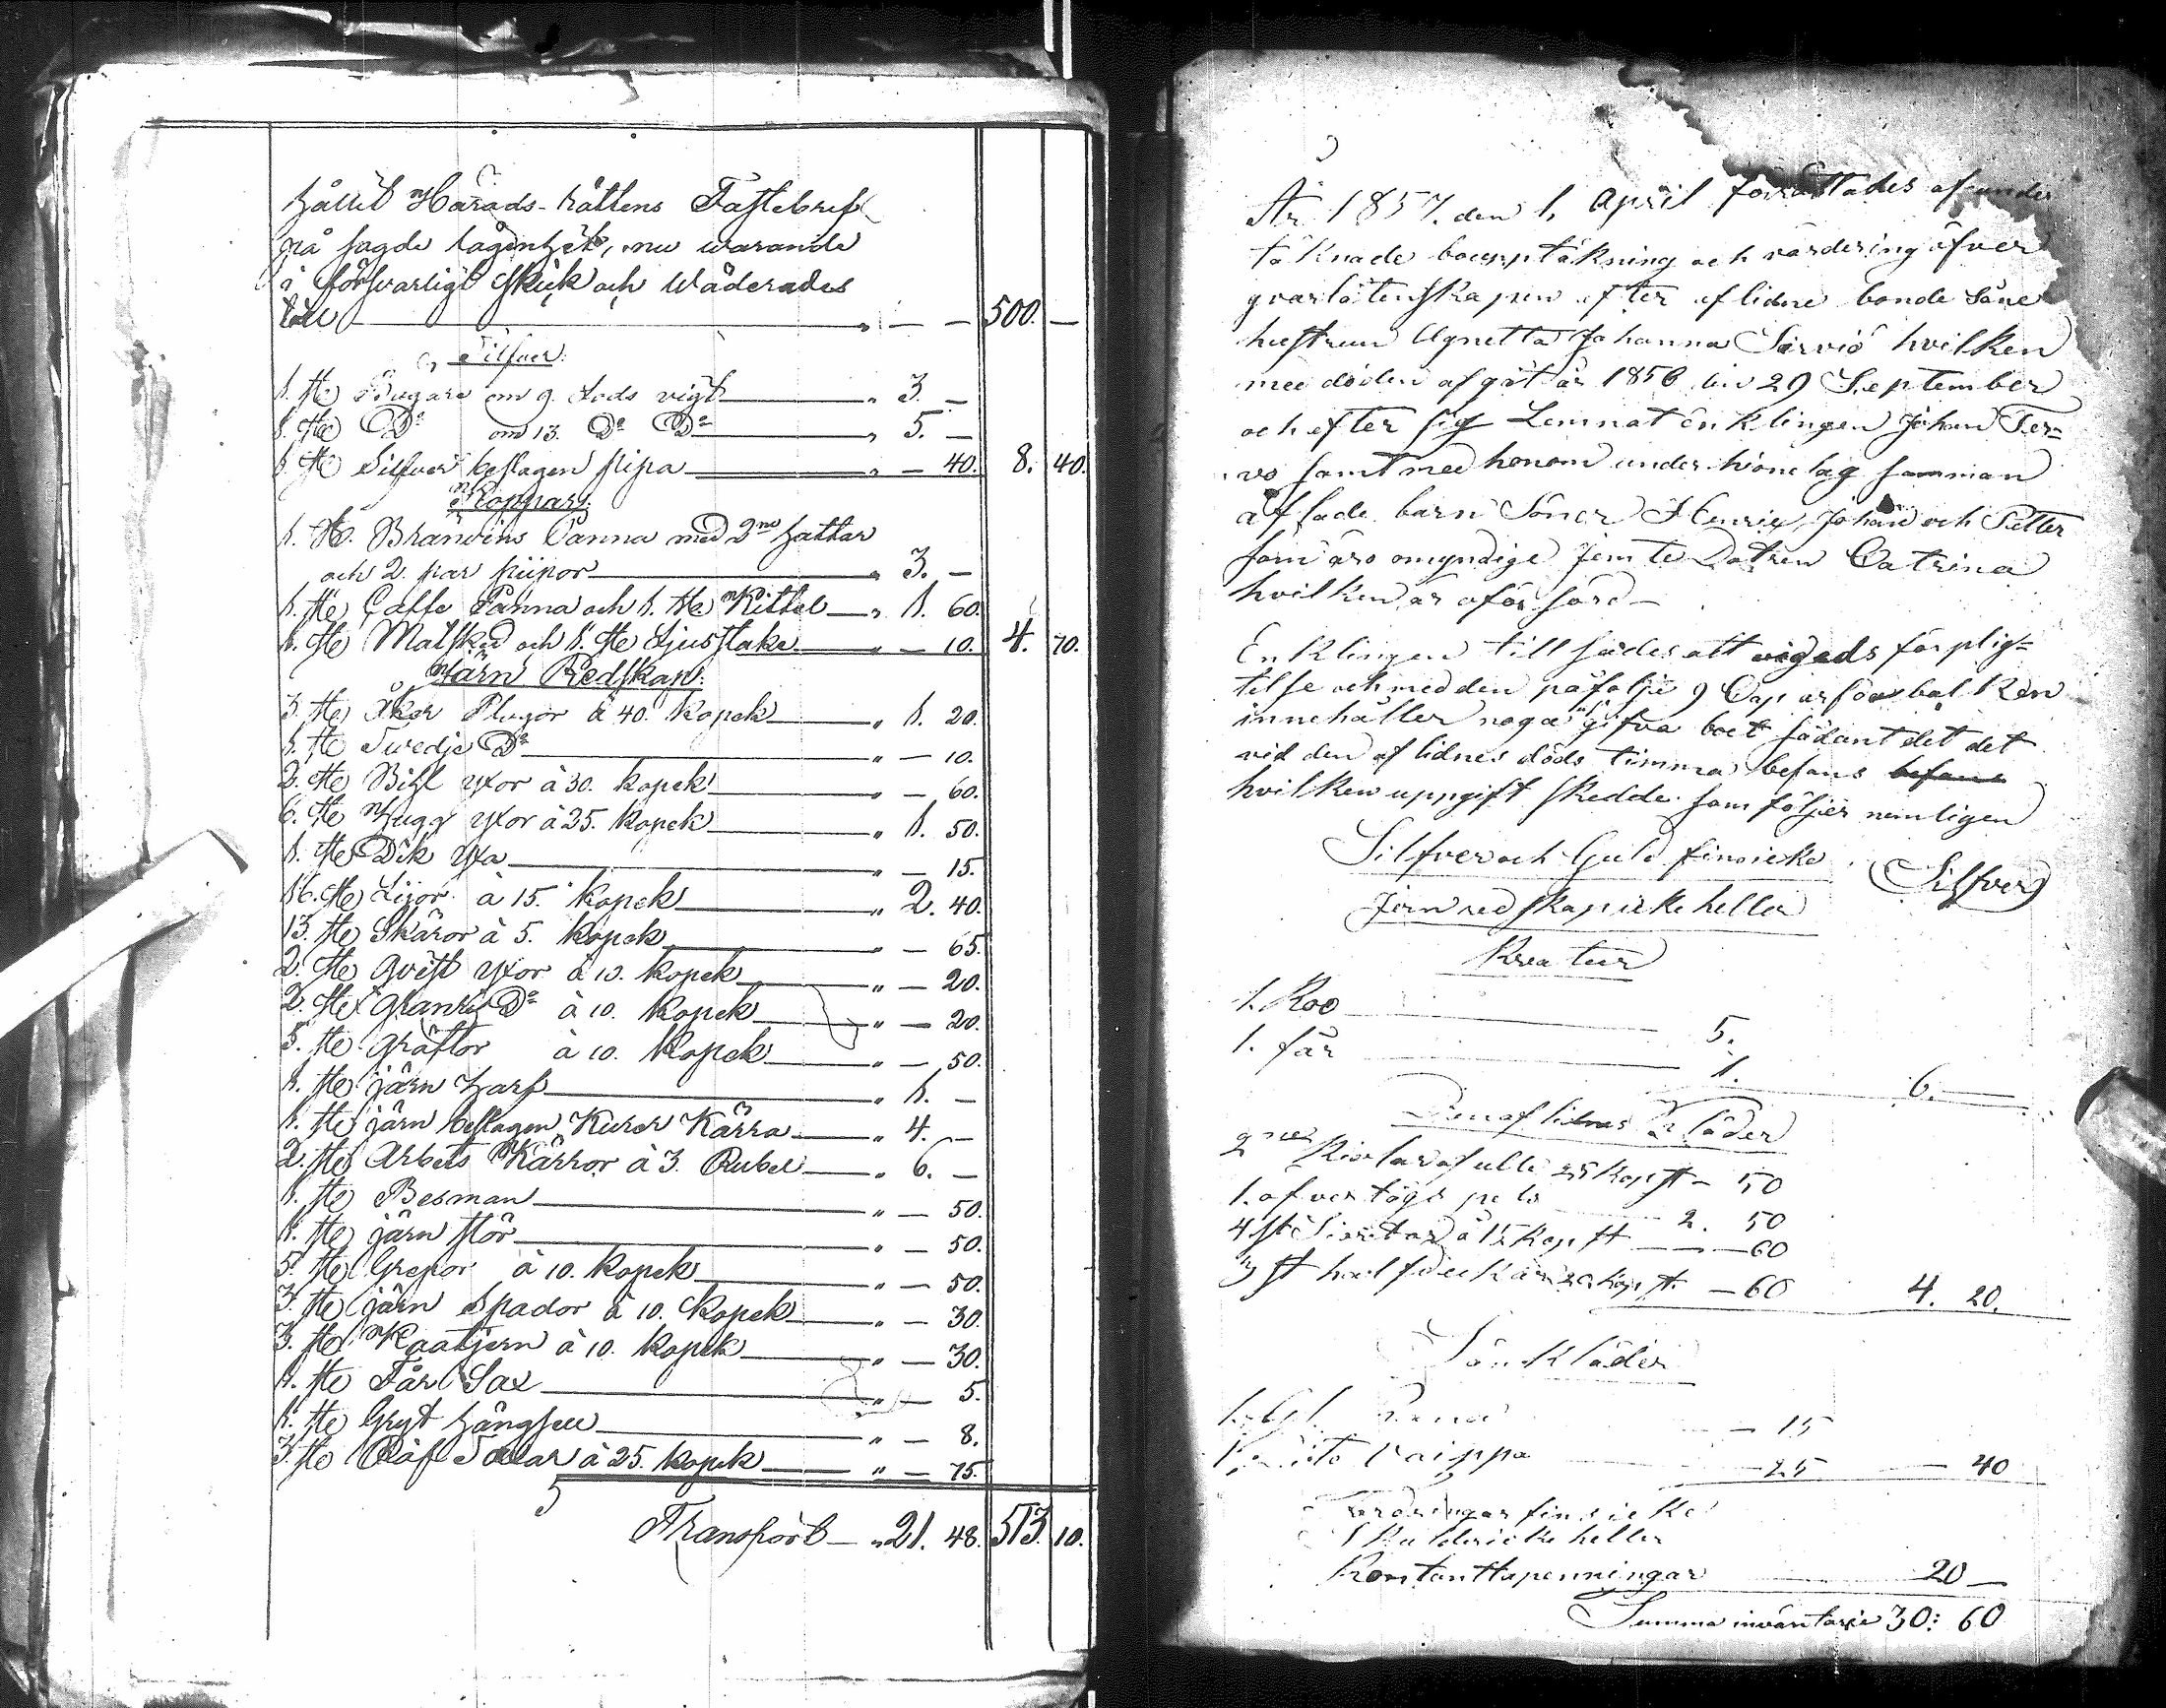 hållit Härads-Rättens Fastebref
på sagde lägenhet, nu warande
i försvarligt skick och wäderades
till — „ — — 500. —
Silfver:
1. St. Bägare om 9. Lods vigt — „ 3. —
1. St. Do om 13. Do Do — „ 5. —
1. St. Silfver beslagen pipa — „ — 40. 8. 40.
Koppar:
1. St. Bränvins Panna med 2ne hattar
och 2. par piipor — „ 3. —
1. St. Caffe Panna och 1. St. Kittel — „ 1. 60.
1. St. Matsked och 1. St. Ljusstake — „ — 10. 4. 70.
Järn Redskap:
3. St. Åker Plogor à 40. Kopek — „ 1. 20.
1. St. Swedje Do — „ — 10.
2. St. Bihl yxor à 30. kopek — „ — 60.
6. St. Hugg yxor à 25. kopek — „ 1. 50.
1. St. Dik yxa — „ — 15.
16. St. Lijor à 15. kopek — „ 2. 40.
13. St. Skäror à 5. kopek — „ — 65.
2. St. Qvist yxor à 10. kopek — „ — 20.
2. St. Do à 10. kopek — „ — 20.
5. St. Gräftor à 10. Kopek — „ — 50.
1. St. järn harf — „ 1. —
1. St. järn beslagen Kärra — „ 4. —
2. St. Arbets Kärror à 3. Rubel — „ 6. —
1. St. Besman — „ — 50.
1. St. järn stör — „ — 50.
5. St. Grepor à 10. kopek — „ — 50.
3. St. järn Spador à 10. Kopek — „ — 30.
3. St. à 10. kopek — „ — 30.
1. St. Får Sax — „ — 5.
1. St. Gryt — „ — 8.
3. St. Räf Saxar à 25. kopek — „ — 75.
Transport — „ 21. 48. 513. 10.
År 1857. den 1. April förrättades af under
täknade boupptäkning och värdering öfver
qvarlåtenskapen efter aflidne bonde Sone
hustrun Agnetta Johanna Servio hvilken
med döden afgåt år 1856 den 29 September
och efter sig Lemnat enklingen Johan Ser=
vo samt med honom under hionelag samman
aflade barn Söner Henrix, Johan och Petter
som äro omyndige jemte Dotren Catrina
hvilken är oförsörd —
Enklingen till sades att edsförplig=
telse och med den påfölje 9 Cap ärfdabalken
innehåller noga opgifva boet sådant det det
vid den aflidnes döds timma befans befans
hvilken uppgift skedde som följer nemligen
Silfver och Guld fins icke Silfver
Jern redskap icke heller
Kreatur
1. Koo — 5.
1. får — 1. 6. —
Den aflidnes kläder
2ne Kiolar af ulle 25 kop st — 50
1. öfvertögs pels — 2. 50
4 st à 15 kop st — 60
3 st halsdukar à 20 kop st. — 60 4. 20.
Sänkläder
1. Gl. — 15
1. — 25 — 40
Fordringar fins icke
Skulder icke heller
Kontantta penningar — 20 —
Summa inväntarie 30: 60